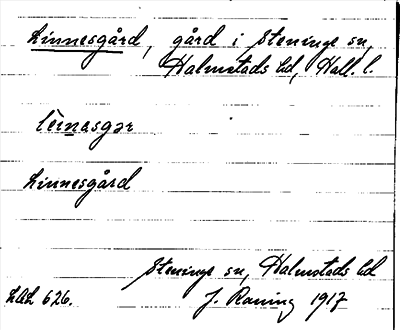 Linnesgård, gård i Steninge sn,
Halmstads hd, Hall. l.
lèinasgar
Linnesgård
Steninge sn, Halmstads hd
LAL 626. J. Raning 1917